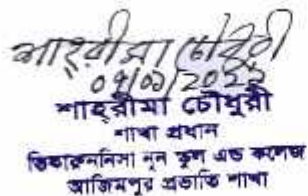 শাহরীমা চৌধুরী
০৭/০১/২০২২
শাহরীমা চৌধুরী
শাখা প্রধান
ভিকারুননিসা নূন স্কুল এন্ড কলেজ
আজিমপুর প্রভাতি শাখা